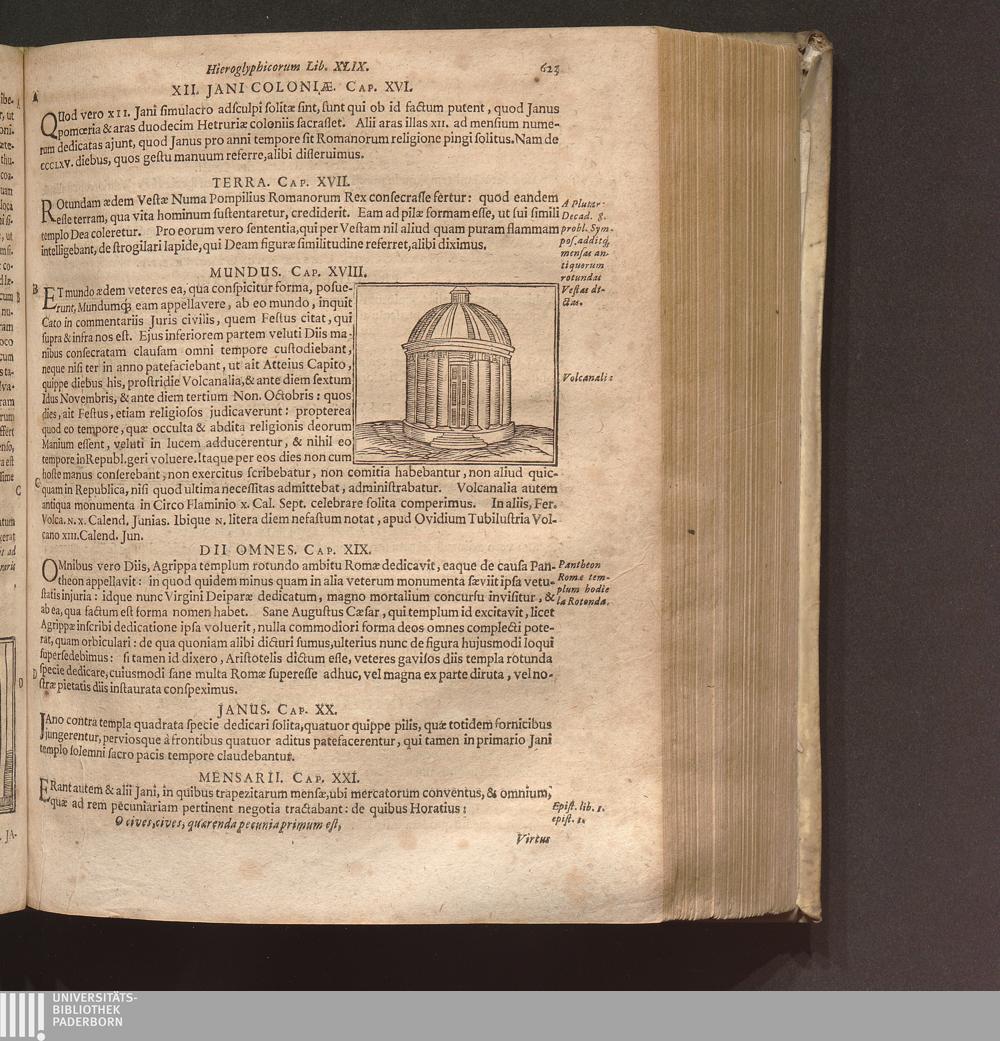 Hieroglyphicorum Lib. XLIX. 623
XII. JANI COLONIÆ. CAP. XVI.
A
QUod vero XII. Jani simulacro adsculpi solitæ sint, sunt qui ob id factum putent, quod Janus
pomœria & aras duodecim Hetruriæ coloniis sacrasset. Alii aras illas XII. ad mensium nume-
rum dedicatas ajunt, quod Janus pro anni tempore sit Romanorum religione pingi solitus. Nam de
CCCLXV. diebus, quos gestu manuum referre, alibi disseruimus.
TERRA. CAP. XVII.
ROtundam ædem Vestæ Numa Pompilius Romanorum Rex consecrasse fertur: quod eandem
esse terram, qua vita hominum sustentaretur, crediderit. Eam ad pilæ formam esse, ut sui simili
templo Dea coleretur. Pro eorum vero sententia, qui per Vestam nil aliud quam puram flammam
intelligebant, de strogilari lapide, qui Deam figuræ similitudine referret, alibi diximus.
A Plutar-
Decad. 8.
probl. Sym-
pos. additq́;
mensas an-
tiquorum
rotundas
Vestas di-
ctas.
MUNDUS. CAP. XVIII.
B
ET mundo ædem veteres ea, qua conspicitur forma, posue-
runt, Mundumq́; eam appellavere, ab eo mundo, inquit
Cato in commentariis Juris civilis, quem Festus citat, qui
supra & infra nos est. Ejus inferiorem partem veluti Diis ma-
nibus consecratam clausam omni tempore custodiebant,
neque nisi ter in anno patefaciebant, ut ait Atteius Capito,
quippe diebus his, prostridie Volcanalia, & ante diem sextum
Idus Novembris, & ante diem tertium Non. Octobris: quos
dies, ait Festus, etiam religiosos judicaverunt: propterea
quod eo tempore, quæ occulta & abdita religionis deorum
Manium essent, veluti in lucem adducerentur, & nihil eo
tempore in Republ. geri voluere. Itaque per eos dies non cum
hoste manus conserebant, non exercitus scribebatur, non comitia habebantur, non aliud quic-
C
quam in Republica, nisi quod ultima necessitas admittebat, administrabatur. Volcanalia autem
antiqua monumenta in Circo Flaminio X. Cal. Sept. celebrare solita comperimus. In aliis, Fer.
Volca. N. X. Calend. Junias. Ibique N. litera diem nefastum notat, apud Ovidium Tubilustria Vol-
cano XIII. Calend. Jun.
Volcanalia
DII OMNES. CAP. XIX.
OMnibus vero Diis, Agrippa templum rotundo ambitu Romæ dedicavit, eaque de causa Pan-
theon appellavit: in quod quidem minus quam in alia veterum monumenta sæviit ipsa vetu-
statis injuria: idque nunc Virgini Deiparæ dedicatum, magno mortalium concursu invisitur, &
ab ea, qua factum est forma nomen habet. Sane Augustus Cæsar, qui templum id excitavit, licet
Agrippæ inscribi dedicatione ipsa voluerit, nulla commodiori forma deos omnes complecti pote-
rat, quam orbiculari: de qua quoniam alibi dicturi sumus, ulterius nunc de figura hujusmodi loqui
supersedebimus: si tamen id dixero, Aristotelis dictum esse, veteres gavisos diis templa rotunda
D
specie dedicare, cuiusmodi sane multa Romæ superesse adhuc, vel magna ex parte diruta, vel no-
stræ pietatis diis instaurata conspeximus.
Pantheon
Romæ tem-
plum hodie
la Rotonda.
JANUS. CAP. XX.
JAno contra templa quadrata specie dedicari solita, quatuor quippe pilis, quæ totidem fornicibus
jungerentur, perviosque à frontibus quatuor aditus patefacerentur, qui tamen in primario Jani
templo solemni sacro pacis tempore claudebantur.
MENSARII. CAP. XXI.
ERant autem & alii Jani, in quibus trapezitarum mensæ, ubi mercatorum conventus, & omnium,
quæ ad rem pecuniariam pertinent negotia tractabant: de quibus Horatius:
O cives, cives, quærenda pecunia primum est,
Epist. lib. 1.
epist. 1.
Virtus
UNIVERSITÄTS-
BIBLIOTHEK
PADERBORN